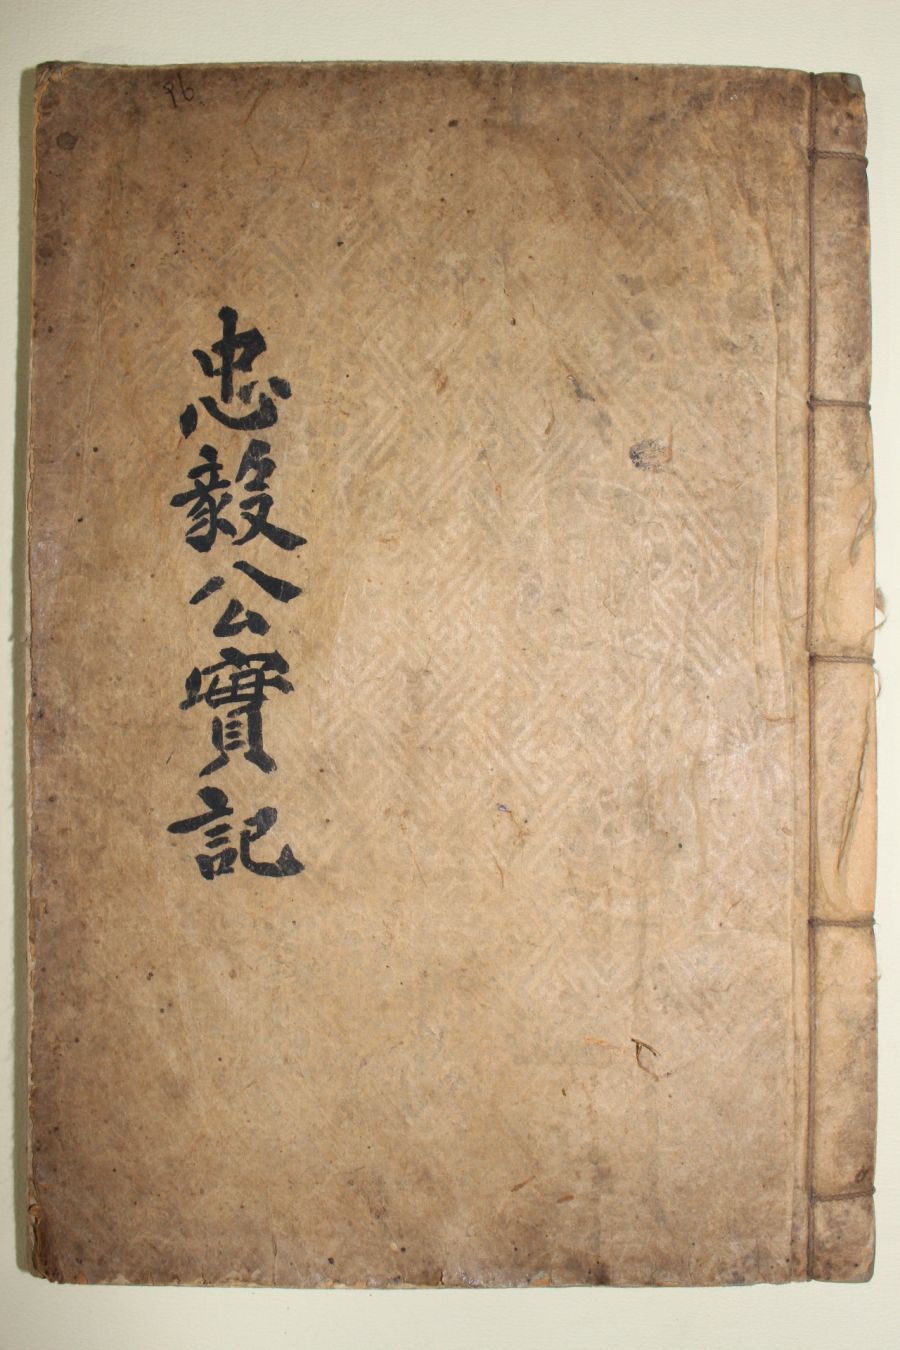 忠毅公實記
96